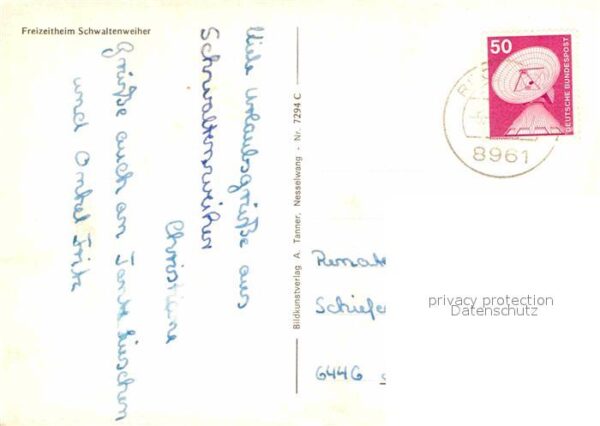 Freizeitheim Schwaltenweiher
Viele Urlaubsgrüße aus
Schwaltenweiher
Christiane
Grüße auch an Tante Lieschen
und Onkel Fritz
Bildkunstverlag A. Tanner, Nesselwang - Nr. 7294 C
50
DEUTSCHE BUNDESPOST
8961
Renat
Schiefe
6446
privacy protection
Datenschutz